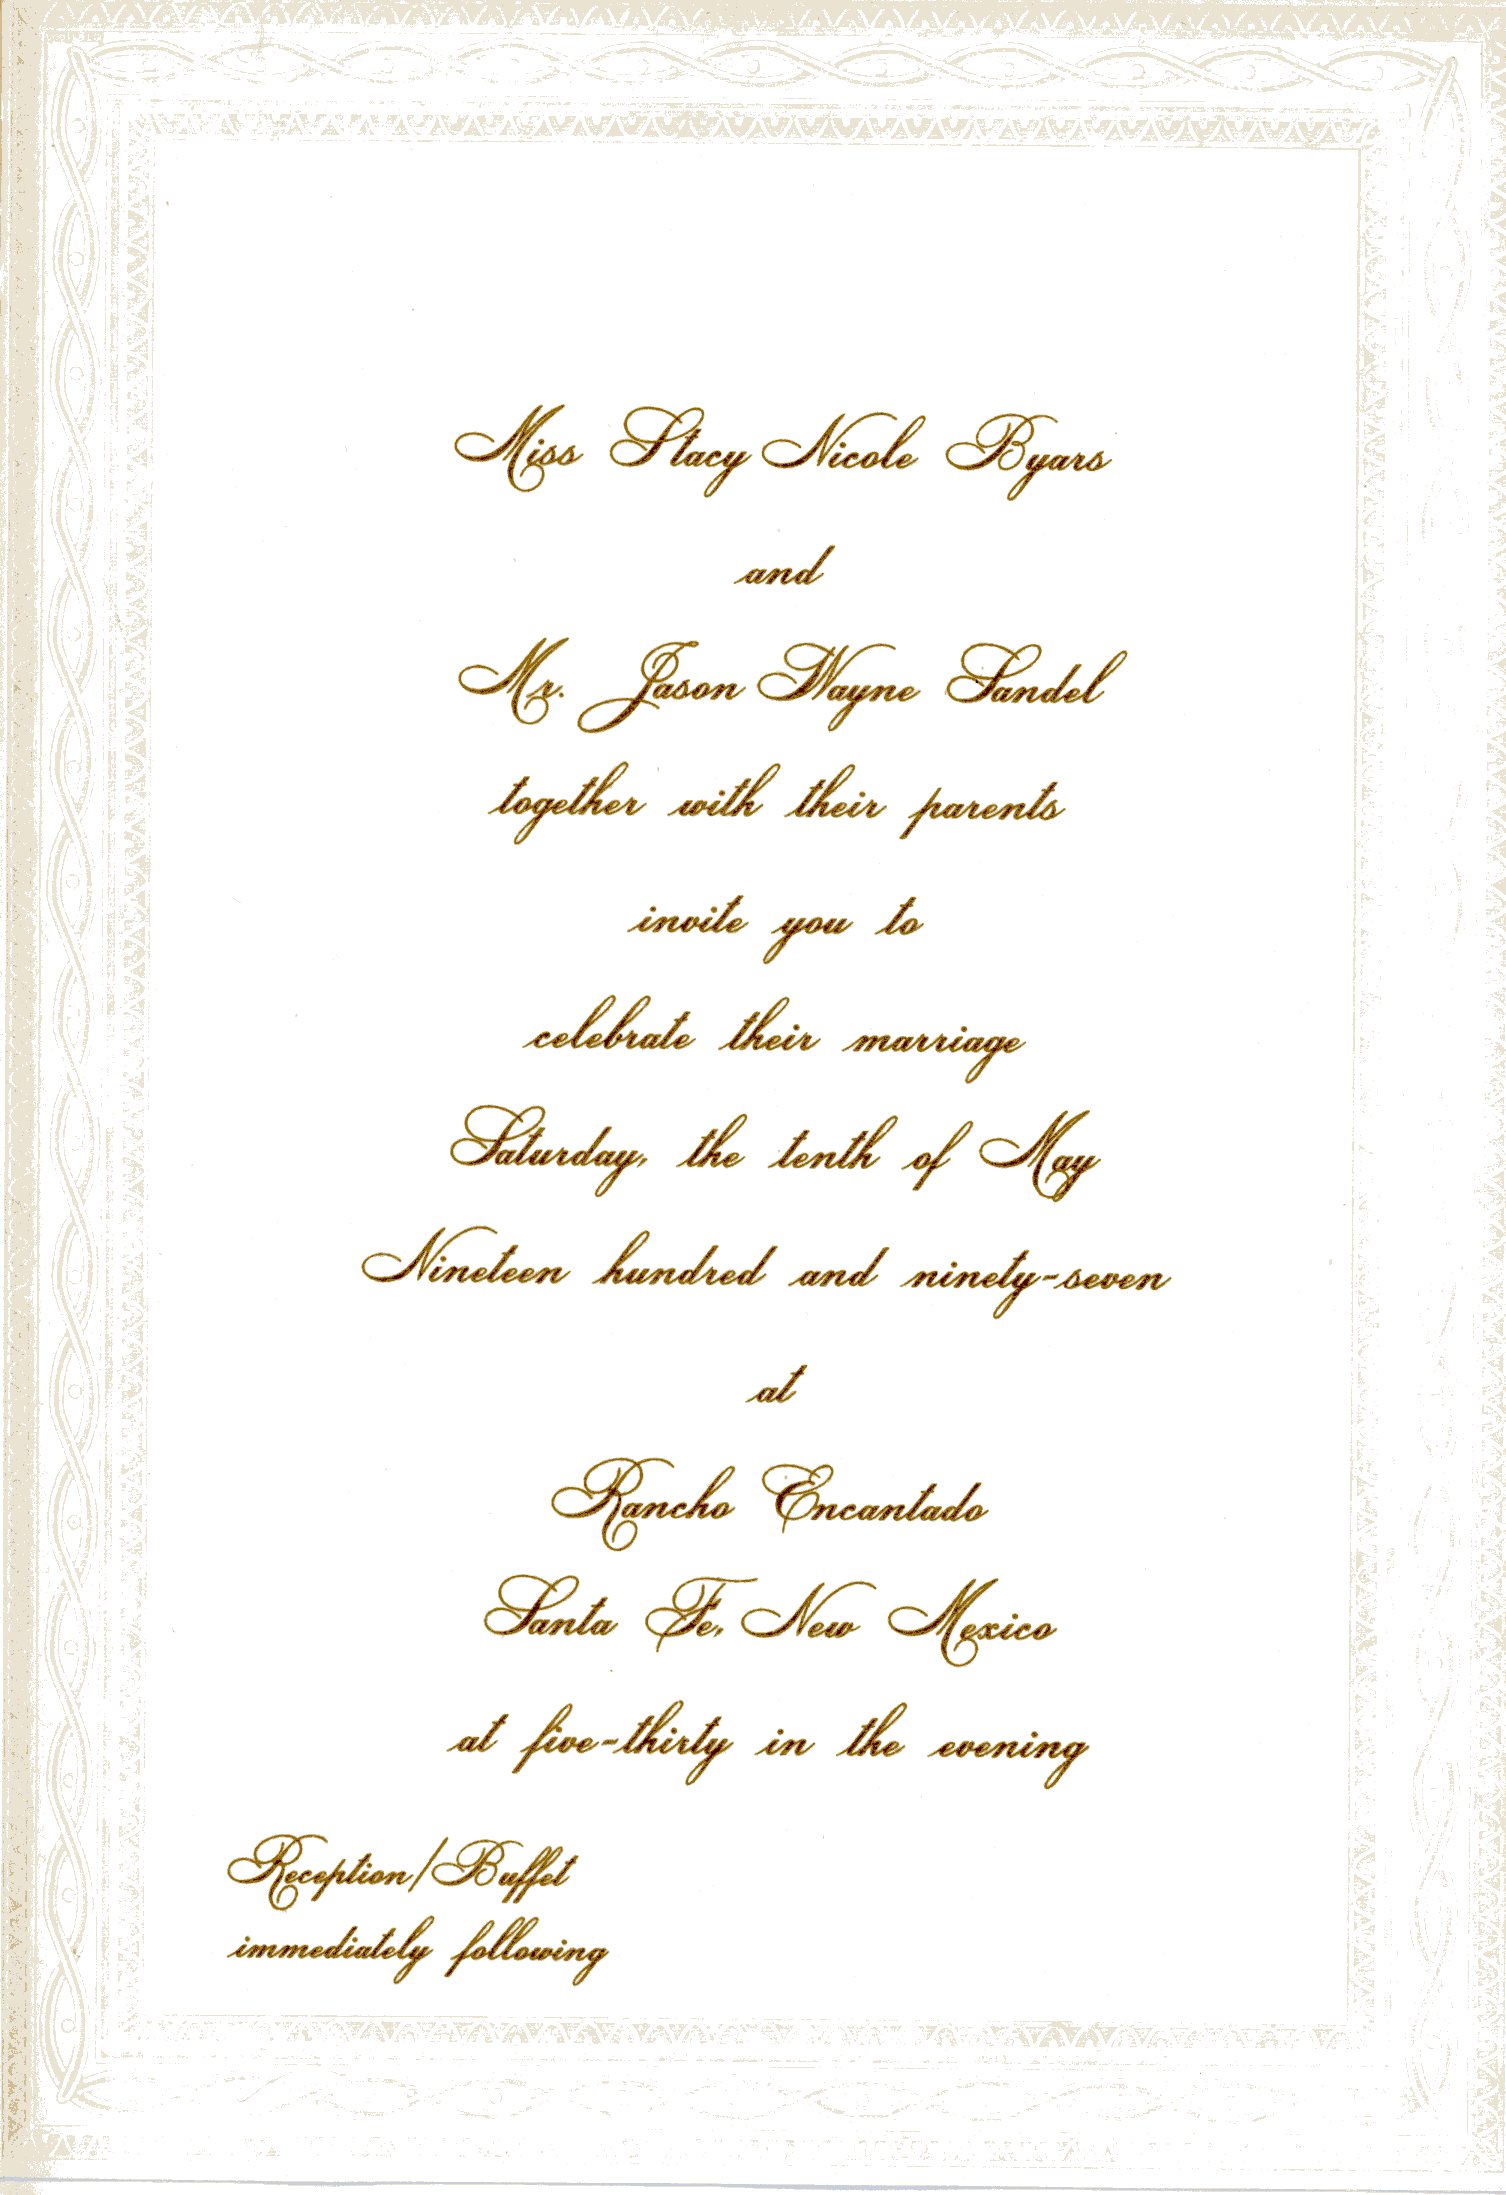 Miss Stacy Nicole Byars
and
Mr. Jason Wayne Sandel
together with their parents
invite you to
celebrate their marriage
Saturday, the tenth of May
Nineteen hundred and ninety-seven
at
Rancho Encantado
Santa Fe, New Mexico
at five-thirty in the evening
Reception/Buffet
immediately following